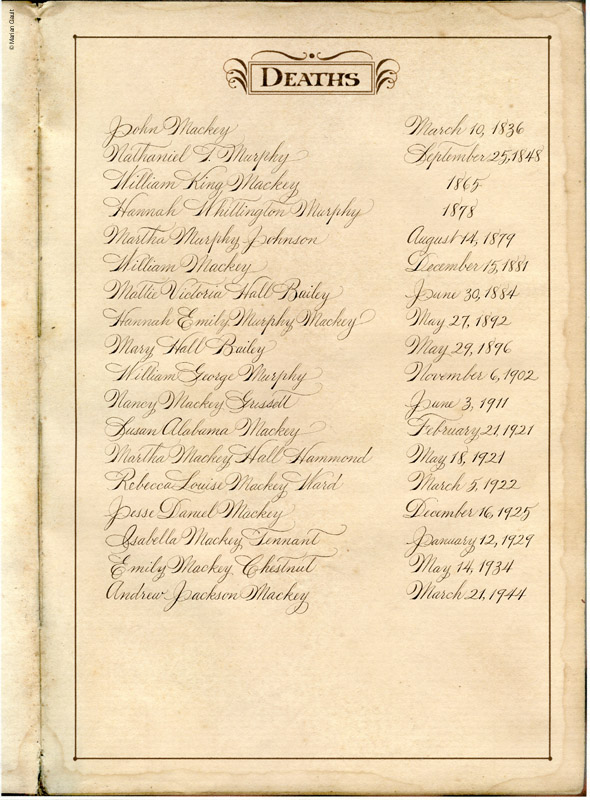 © Marian Gault
DEATHS
John Mackey March 10, 1836
Nathaniel T. Murphy September 25, 1848
William King Mackey 1865
Hannah Whittington Murphy 1878
Martha Murphy Johnson August 14, 1879
William Mackey December 15, 1881
Mattie Victoria Hall Bailey June 30, 1884
Hannah Emily Murphy Mackey May 27, 1892
Mary Hall Bailey May 29, 1896
William George Murphy November 6, 1902
Nancy Mackey Grissett June 3, 1911
Susan Alabama Mackey February 21, 1921
Martha Mackey Hall Hammond May 18, 1921
Rebecca Louise Mackey Ward March 5, 1922
Jesse Daniel Mackey December 16, 1925
Isabella Mackey Tennant January 12, 1929
Emily Mackey Chestnut May 14, 1934
Andrew Jackson Mackey March 21, 1944